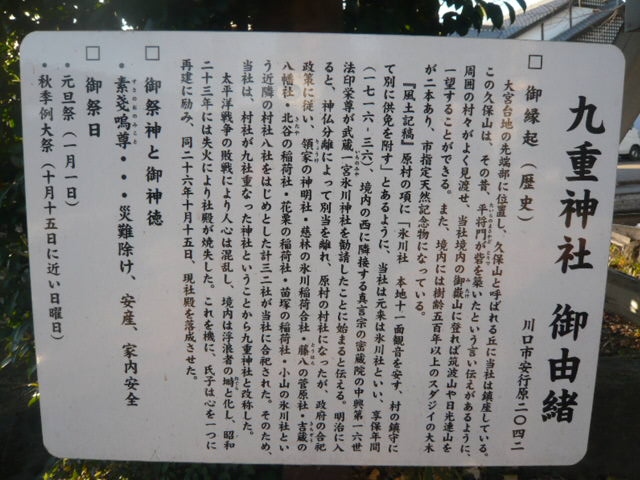 九重神社 御由緒
川口市安行原二〇四二
□ 御縁起（歴史）
大宮台地の先端部に位置し、久保山と呼ばれる丘に当社は鎮座している。
この久保山は、その昔、平将門が砦を築いたという言い伝えがあるように、
周囲の村々がよく見渡せ、当社境内の御嶽山に登れば筑波山や日光連山を
一望することができる。また、境内には樹齢五百年以上のスダジイの大木
が二本あり、市指定天然記念物になっている。
『風土記稿』原村の項に「氷川社 本地十一面観音を安す、村の鎮守に
て別に供免を附す」とあるように、当社は元来は氷川社といい、享保年間
（一七一六−三六）、境内の西に隣接する真言宗の密蔵院の中興第一六世
法印栄尊が武蔵一宮氷川神社を勧請したことに始まると伝える。明治に入
ると、神仏分離によって別当を離れ、原村の村社になったが、政府の合祀
政策に従い、領家の神明社・慈林の氷川稲荷合社・藤八の菅原社・吉蔵の
八幡社・北谷の稲荷社・花栗の稲荷社・苗塚の稲荷社・小山の氷川社とい
う近隣の村社八社をはじめとした計三二社が当社に合祀された。そのため、
当社は、村社が九社重なった神社ということから九重神社と改称した。
太平洋戦争の敗戦により人心は混乱し、境内は浮浪者の塒と化し、昭和
二十三年には失火により社殿が焼失した。これを機に、氏子は心を一つに
再建に励み、同二十六年十月十五日、現社殿を落成させた。
□ 御祭神と御神徳
・素戔嗚尊・・・災難除け、安産、家内安全
□ 御祭日
・元旦祭（一月一日）
・秋季例大祭（十月十五日に近い日曜日）